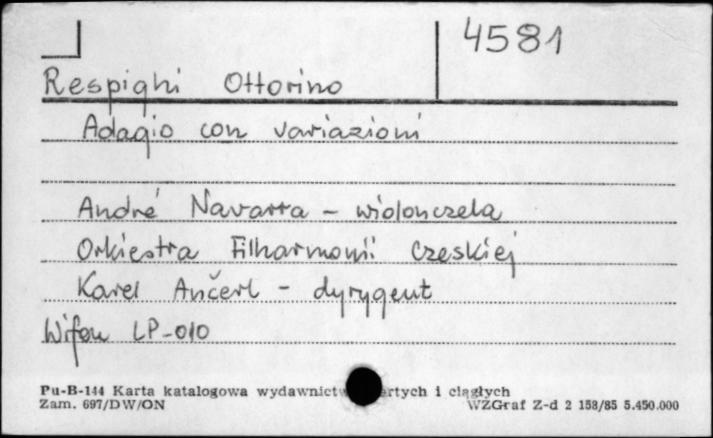 4581
Respighi Ottorino
Adagio con variazioni
André Navarra - wiolonczela
Orkiestra Filharmonii Czeskiej
Karel Ančerl - dyrygent
Wifon LP-010
Pu-B-144 Karta katalogowa i ciągłych
Zam. 697/DW/ON WZGraf Z-d 2 158/85 5.450.000